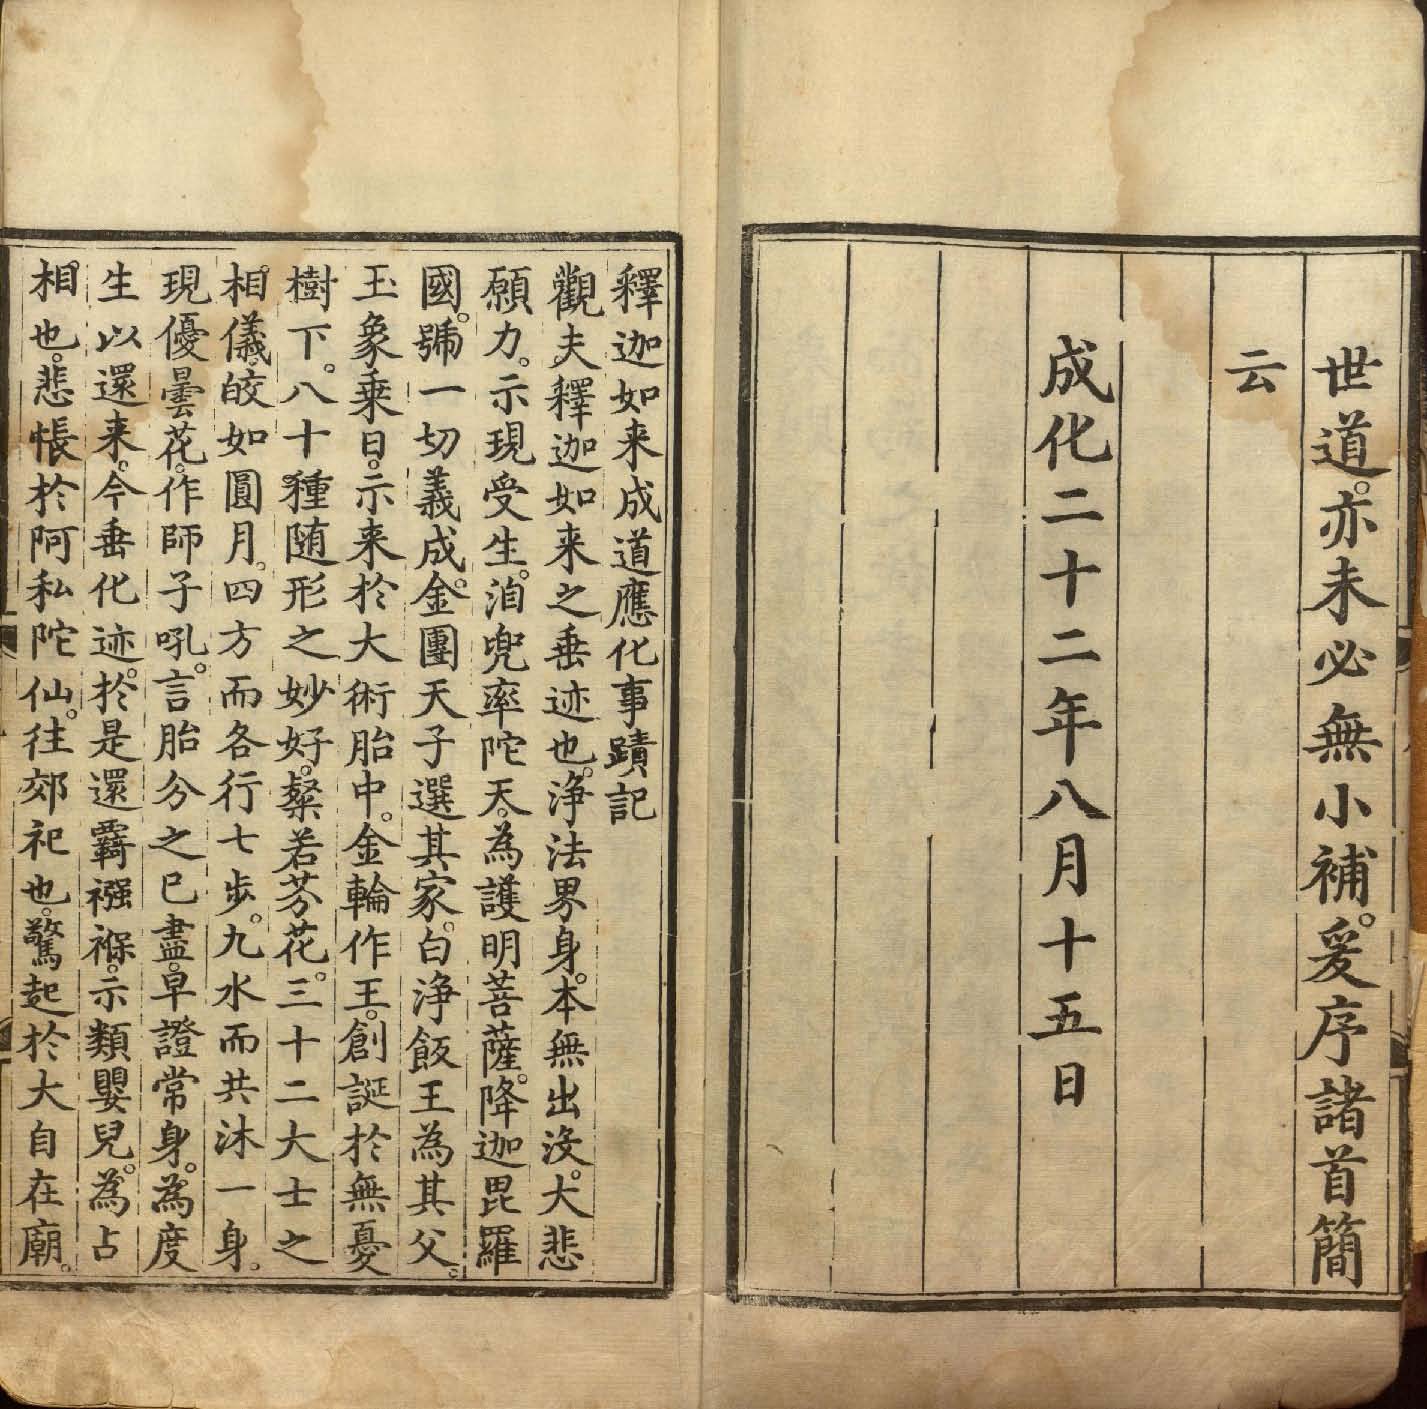 世道。亦未必無小補。爰序諸首簡
云
成化二十二年八月十五日
釋迦如来成道應化事蹟記
觀夫釋迦如来之垂迹也。淨法界身。本無出没。大悲
願力。示現受生。洎兜率陀天。為護明菩薩。降迦毘羅
國。號一切義成。金團天子選其家。白淨飯王為其父。
玉象乗日。示来於大術胎中。金輪作王。創誕於無憂
樹下。八十種随形之妙好。粲若芬花。三十二大士之
相儀。皎如圓月。四方而各行七步。九水而共沐一身。
現優曇花。作師子吼。言胎分之已盡。早證常身。為度
生以還来。今垂化迹。於是還羇襁褓。示類嬰兒。為占
相也。悲悵於阿私陀仙。往郊祀也。驚起於大自在廟。